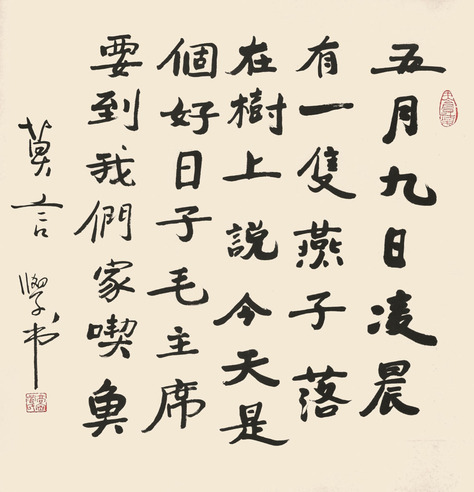 五月九日凌晨
有一隻燕子落
在樹上説今天是
個好日子毛主席
要到我們家喫魚
莫言學书